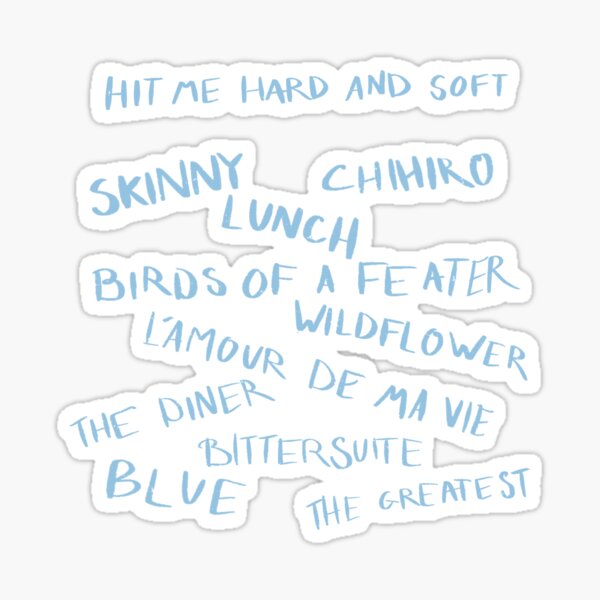 HIT ME HARD AND SOFT
SKINNY
CHIHIRO
LUNCH
BIRDS OF A FEATER
WILDFLOWER
L'AMOUR DE MA VIE
THE DINER
BITTERSUITE
BLUE
THE GREATEST